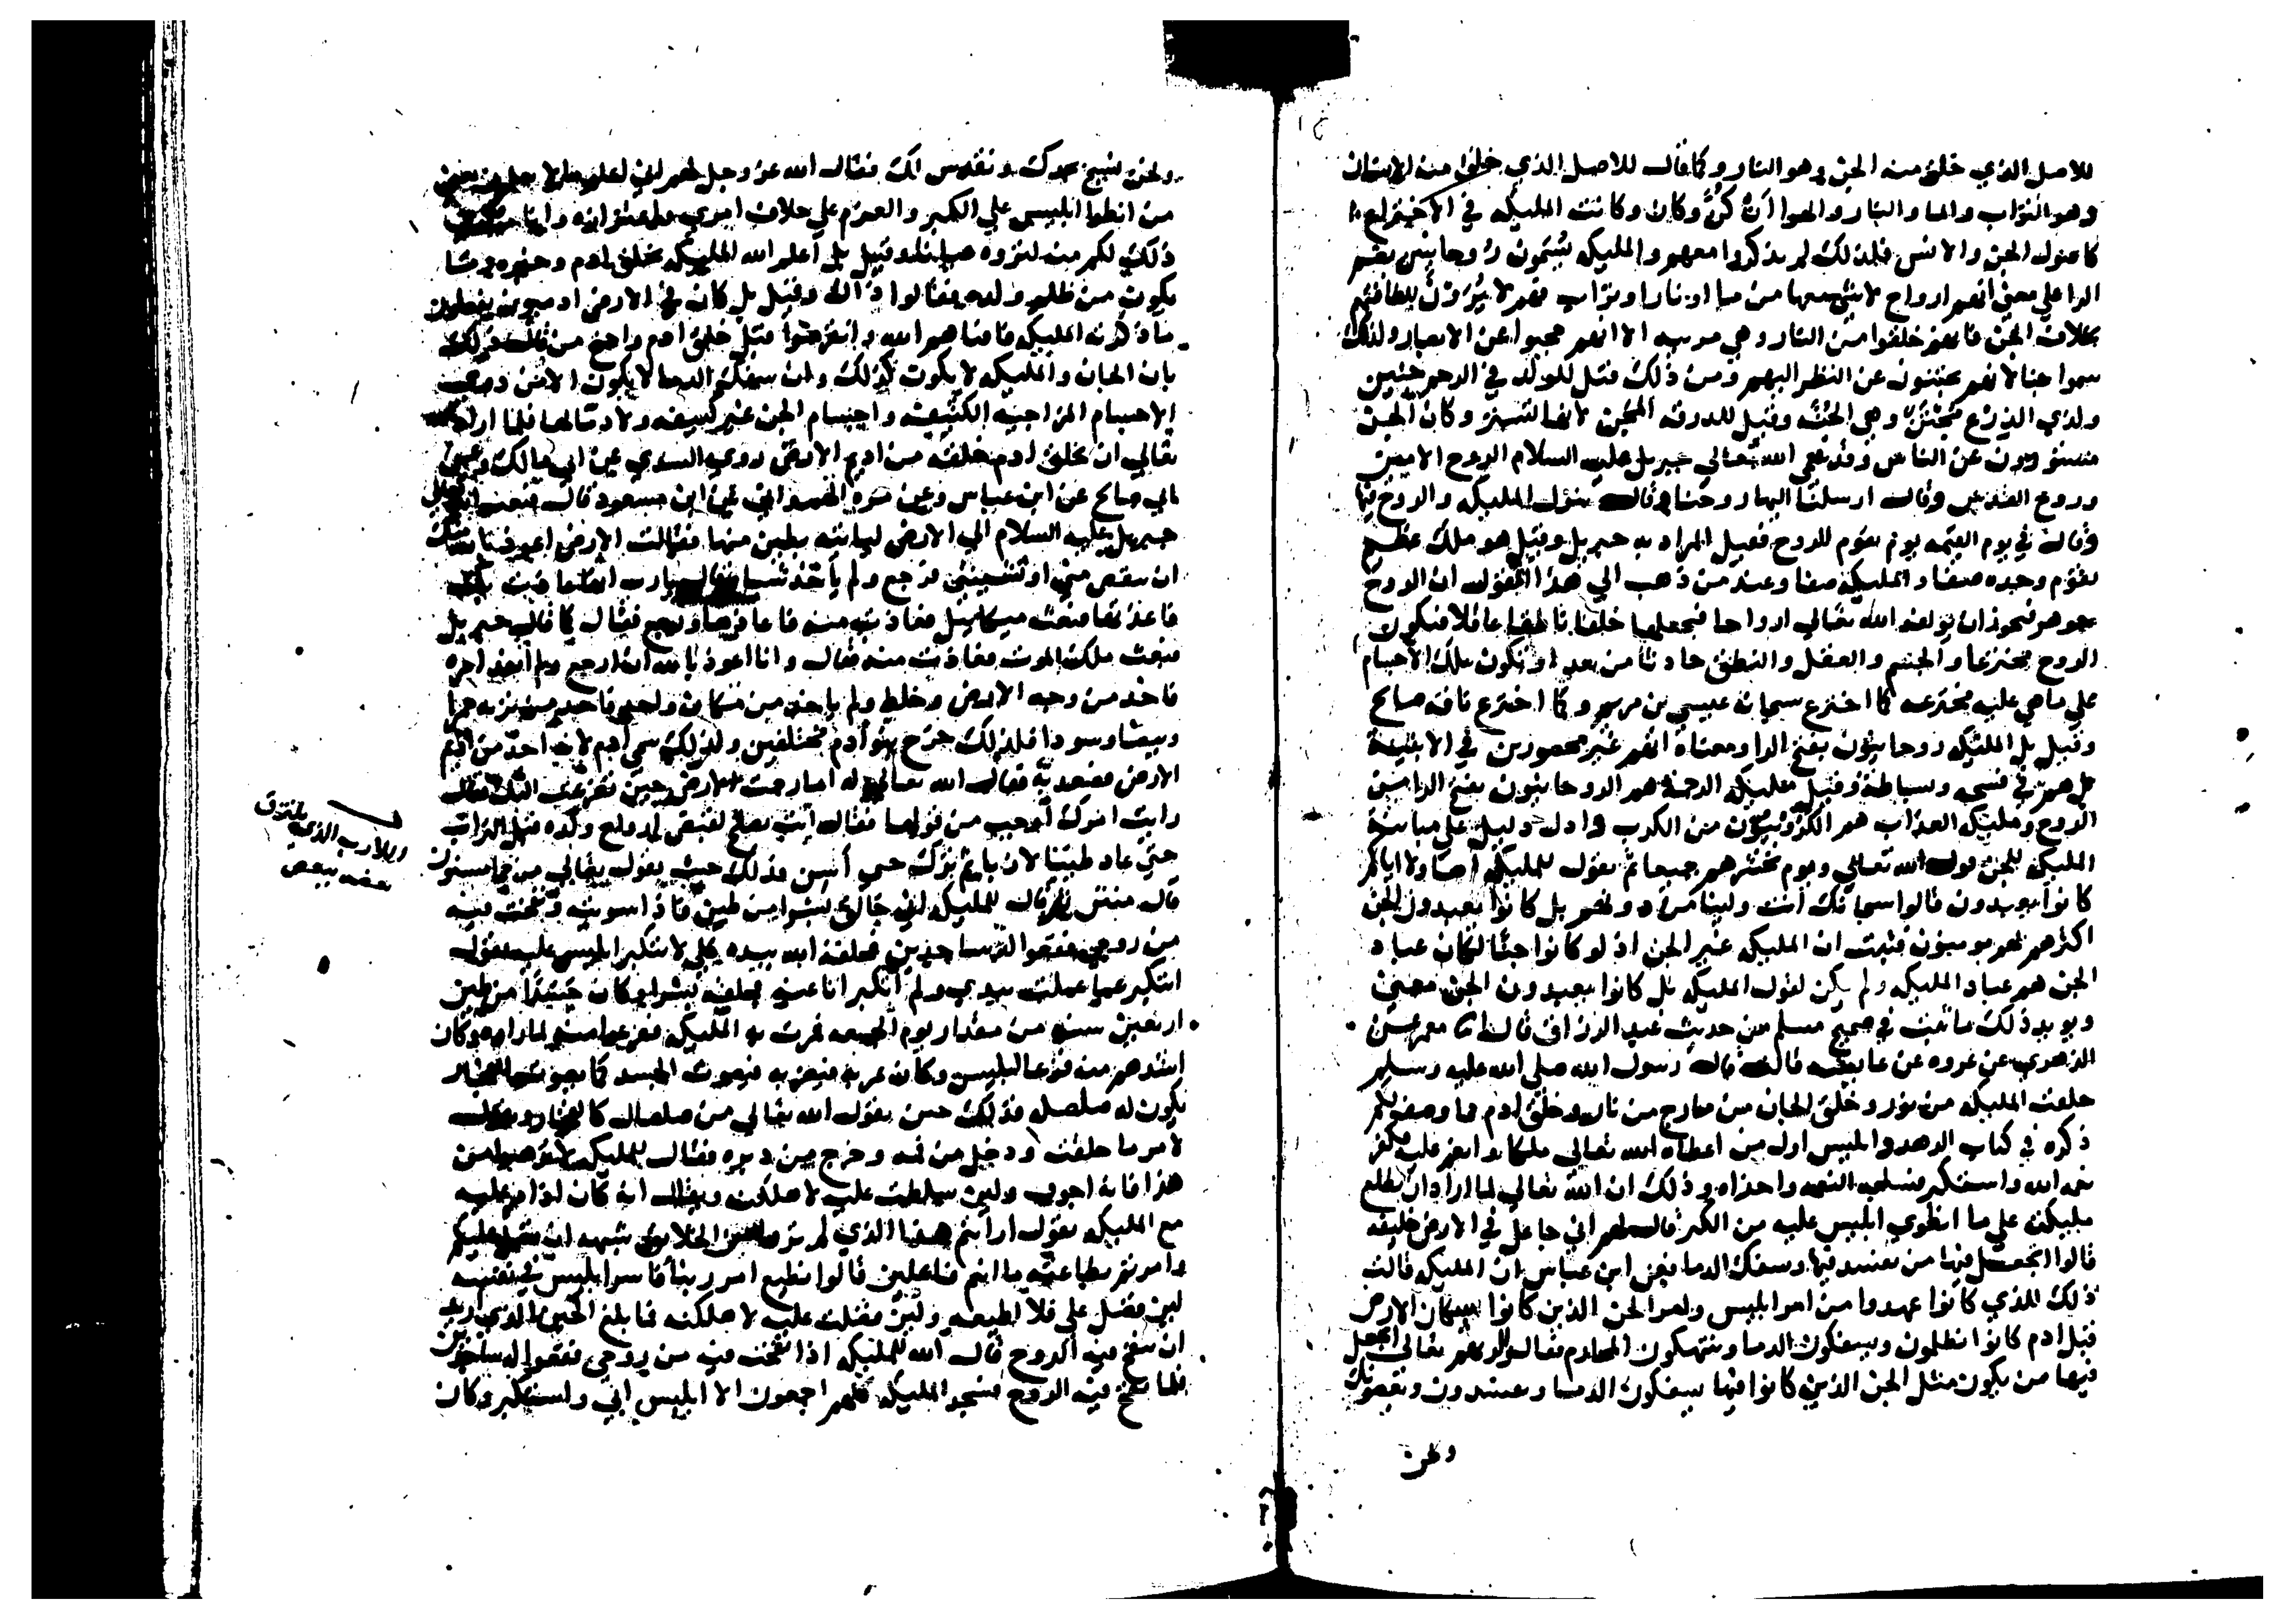 للاصل الذي خلق منه الجن وهو النار وكما قال للاصل الذي خلق منه الانسان
وهو التراب والما والنار والهوا كن وكان وكانت المليكه في الاختراع
كاصول الجن والانس فلذلك لم يذكروا معهم والمليكه يسمون روحانيين بضم
الرا علي معني انهم ارواح لا شي معها من ما او نار او تراب فهم لا يرون للطافتهم
بخلاف الجن فانهم خلقوا من النار وهي مرييه الا انهم حجبوا عن الابصار ولذلك
سموا جنا لانهم يجتنون عن النظر اليهم ومن ذلك قيل للولد في الرحم جنين
ولذي الدرع مجتن وهي الجنه وقيل للدرقه المجن لانها تستر وكان الجن
مستورون عن الناس وقد سمي الله تعالي جبريل عليه السلام الروح الامين
وروح القدس وقال ارسلنا اليها روحنا وقال تنزل المليكه والروح فيها
وقال في يوم القيمه يوم يقوم الروح فقيل المراد به جبريل وقيل هو ملك عظيم
يقوم وحده صفا والمليكه صفا وعند من ذهب الي هذا القول ان الروح
جوهر فيجوز ان يولف الله تعالي ارواحا فيجعلها خلقا ناطقا عاقلا فيكون
الروح مخترعا والجسم والعقل والنطق حادثا من بعد او تكون تلك الاجسام
علي ما هي عليه مخترعه كما اخترع سبحانه عيسي بن مريم وكما اخترع ناقه صالح
وقيل بل المليكه روحانيون بفتح الرا ومعناه انهم غير محصورين في الابنيه
بل هم في فسحه وبساطه وقيل مليكه الرحمه هم الروحانيون بفتح الرا من
الروح ومليكه العذاب هم الكروبيون من الكرب وادل دليل علي مباينه
المليكه للجن قول الله تعالي ويوم نحشرهم جميعا ثم نقول للمليكه اهاولا اياكم
كانوا يعبدون قالوا سبحانك انت ولينا من دونهم بل كانوا يعبدون الجن
اكثرهم بهم مومنون فثبت ان المليكه غير الجن اذ لو كانوا جنا لكان عباد
الجن هم عباد المليكه ولم يكن لقول المليكه بل كانوا يعبدون الجن معني
ويويد ذلك ما ثبت في صحيح مسلم من حديث عبد الرزاق قال انا معمر عن
الزهري عن عروه عن عايشه قالت قال رسول الله صلي الله عليه وسلم
خلقت المليكه من نور وخلق الجان من مارج من نار وخلق ادم مما وصف لكم
ذكره في كتاب الزهد وابليس اول من اعطاه الله تعالي ملكا وانعم عليه فكفر
نعمه الله واستكبر فسلبه النعمه واخزاه وذلك ان الله تعالي لما اراد ان يطلع
مليكته علي ما انطوي ابليس عليه من الكبر قال لهم اني جاعل في الارض خليفه
قالوا اتجعل فيها من يفسد فيها ويسفك الدما فعن ابن عباس ان المليكه قالت
ذلك للذي كانوا عهدوا من امر ابليس وامر الجن الذين كانوا سكان الارض
قبل ادم كانوا يظلمون ويسفكون الدما وينتهكون المحارم فقالوا لربهم تعالي اتجعل
فيها من يكون مثل الجن الذين كانوا فيها يسفكون الدما ويفسدون ويعصونك
ونحن
ونحن نسبح بحمدك ونقدس لك فقال الله عز وجل لهم اني اعلم ما لا تعلمون يعني
من انطوا ابليس علي الكبر والعزم علي خلاف امري
ذلك لكم منه لتروه عيانا وقيل بل اعلم الله المليكه بخلق ادم وخبره وما
يكون من ظلم ولده فقالوا ذلك وقيل بل كان في الارض ادميون يفعلون
ما ذكرته المليكه فافناهم الله وانقرضوا قبل خلق ادم واحتج من قال ذلك
بان الجان والمليكه لا يكون كذلك وان سفك الدما لا يكون الا من ذوي
الاجسام المزاجيه الكثيفه واجسام الجن غير كثيفه ولا دما لها فلما اراد الله
تعالي ان يخلق ادم خلقه من اديم الارض روي السدي عن ابي مالك وعن
ابي صالح عن ابن عباس وعن مره الهمداني عن ابن مسعود قال فبعث الله
جبريل عليه السلام الي الارض لياتيه بطين منها فقالت الارض اعوذ بالله منك
ان تنقص مني او تشينني فرجع ولم ياخذ شيا فقال يارب انها عاذت بك
فاعذتها فبعث ميكاييل فعاذت منه فاعاذها ورجع فقال كما قال جبريل
فبعث ملك الموت فعاذت منه فقال وانا اعوذ بالله ان ارجع ولم انفذ امره
فاخذ من وجه الارض وخلط ولم ياخذ من مكان واحد فاخذ من تربه حمرا
وبيضا وسودا فلذلك خرج بنو ادم مختلفين ولذلك سمي ادم لانه اخذ من اديم
الارض فصعد به فقال الله تعالي له اما رحمت الارض حين تضرعت اليك فقال
رايت امرك اوجب من قولها فقال انت تصلح لقبض ارواح ولده فبل التراب
حتي عاد طينا لازبا ثم ترك حتي انتن فذلك حيث يقول تعالي من حما مسنون
قال منتن ثم قال للمليكه اني خالق بشرا من طين فاذا سويته ونفخت فيه
من روحي فقعوا له ساجدين فخلقه الله بيده لكي لا يتكبر ابليس عليه يقول
اتتكبر عما عملت بيدي ولم اتكبر انا عنه فخلقه بشرا فكان جسدا من طين
اربعين سنه من مقدار يوم الجمعه فمرت به المليكه ففزعوا منه لما راوه وكان
اشدهم منه فزعا ابليس وكان يمر به فيضربه فيصوت الجسد كما يصوت الفخار
يكون له صلصله فذلك حين يقول الله تعالي من صلصال كالفخار ويقول
لامر ما خلقت ودخل من فمه وخرج من دبره فقال للمليكه لا ترهبوا من
هذا فانه اجوف ولين سلطت عليه لاهلكنه ويقال انه كان اذا مر عليه
مع المليكه يقول ارايتم هذا الذي لم تروا من الخلايق شبهه ان فضل عليكم
وامرتم بطاعته ما انتم فاعلين قالوا نطيع امر ربنا فاسر ابليس في نفسه
لين فضل علي فلا اطيعه ولين فضلت عليه لاهلكنه فلما بلغ الحين الذي اريد
ان ينفخ فيه الروح قال الله للمليكه اذا نفخت فيه من روحي فقعوا له ساجدين
فلما نفخ فيه الروح فسجد المليكه كلهم اجمعون الا ابليس ابي واستكبر وكان
اللازب الذي يلتزق
بعضه ببعض